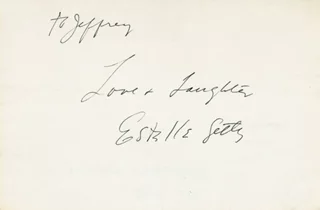 to Jeffrey
Love + Laughter
Estelle Getty